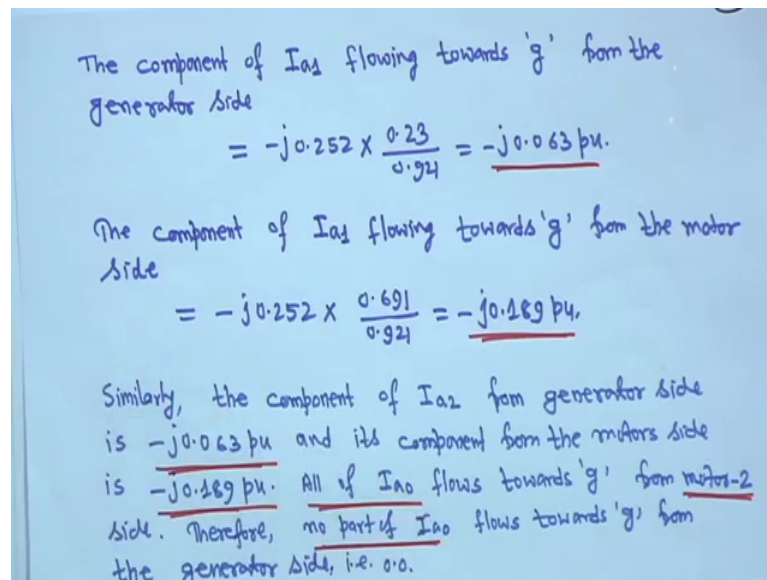 The component of Ia1 flowing towards 'g' from the
generator side
= -j0.252 x 0.23/0.921 = -j0.063 pu.
The component of Ia1 flowing towards 'g' from the motor
side
= -j0.252 x 0.691/0.921 = -j0.189 pu.
Similarly, the component of Ia2 from generator side
is -j0.063 pu and its component from the motors side
is -j0.189 pu. All of Iao flows towards 'g' from motor-2
side. Therefore, no part of Iao flows towards 'g' from
the generator side, i.e. 0.0.